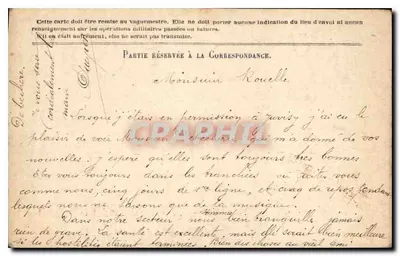 Cette carte doit être remise au vaguemestre. Elle ne doit porter aucune indication du lieu d'envoi ni aucun
renseignement sur les opérations militaires passées ou futures.
S'il en était autrement, elle ne serait pas transmise.
PARTIE RÉSERVÉE À LA CORRESPONDANCE.
Monsieur Rouelle
Lorsque j'étais en permission à Juvisy j'ai eu le
plaisir de voir Monsieur qui m'a donné de vos
nouvelles; j'espère qu'elles sont toujours très bonnes
Etes vous toujours dans les tranchées ou faites vous
comme nous, cinq jours de 1re ligne, et cinq de repos pendant
lesquels nous ne faisons que de la musique.
Dans notre secteur nous sommes bien tranquille jamais
rien de grave. La santé est excellente, mais elle serait bien meilleure
si les hostilités étaient terminées. Bien des choses au vieil ami
De bechere
vous serre
cordialement la
main
CPARAMA